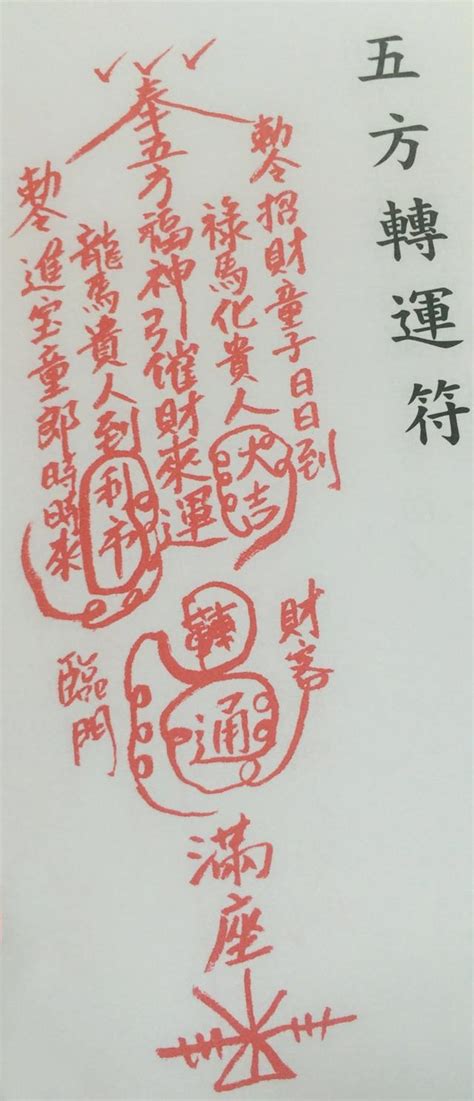 五方轉運符
勅令招財童子日日到
祿馬化貴人
大吉
奉五方福神引催財來運
龍馬貴人到
利市
勅令進宝童郎時時來
轉
通
財客
臨門
滿座